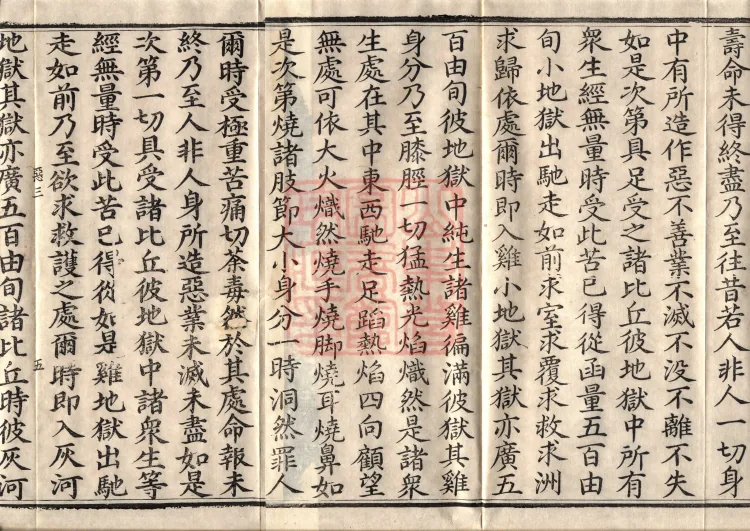 壽命未得終盡乃至往昔若人非人一切身
中有所造作惡不善業不滅不没不離不失
如是次第具足受之諸比丘彼地獄中所有
衆生經無量時受此苦已得從函量五百由
旬小地獄出馳走如前求室求覆求救求洲
求歸依處爾時即入雞小地獄其獄亦廣五
百由旬彼地獄中純生諸雞徧滿彼獄其雞
身分乃至膝脛一切猛熱光焰熾然是諸衆
生處在其中東西馳走足蹈熱焰四向顧望
無處可依大火熾然燒手燒脚燒耳燒鼻如
是次第燒諸肢節大小身分一時洞然罪人
爾時受極重苦痛切荼毒然於其處命報未
終乃至人非人身所造惡業未滅未盡如是
次第一切具受諸比丘彼地獄中諸衆生等
經無量時受此苦已得從如是雞地獄出馳
走如前乃至欲求救護之處爾時即入灰河
地獄其獄亦廣五百由旬諸比丘時彼灰河
三
五